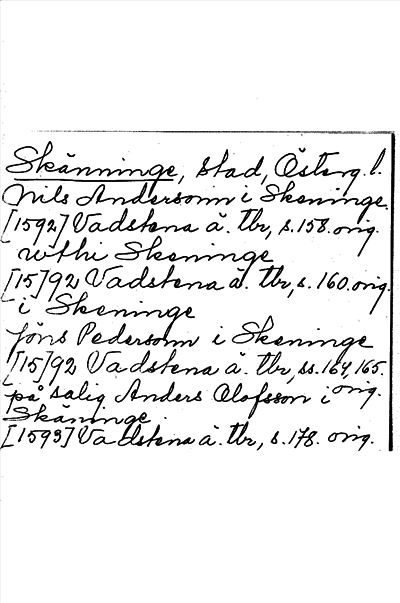 Skänninge, stad, Österg. l.
Nils Andersonn i Skeninge.
[1592] Vadstena ä. tbr, s. 158. orig.
wthi Skeninge
[15]92 Vadstena ä. tbr, s. 160. orig.
i Skeninge
Jöns Pedersonn i Skeninge
[15]92 Vadstena ä. tbr, ss. 164, 165. orig.
på salig Anders Olofsson i
Skäninge.
[1593] Vadstena ä. tbr, s. 178. orig.